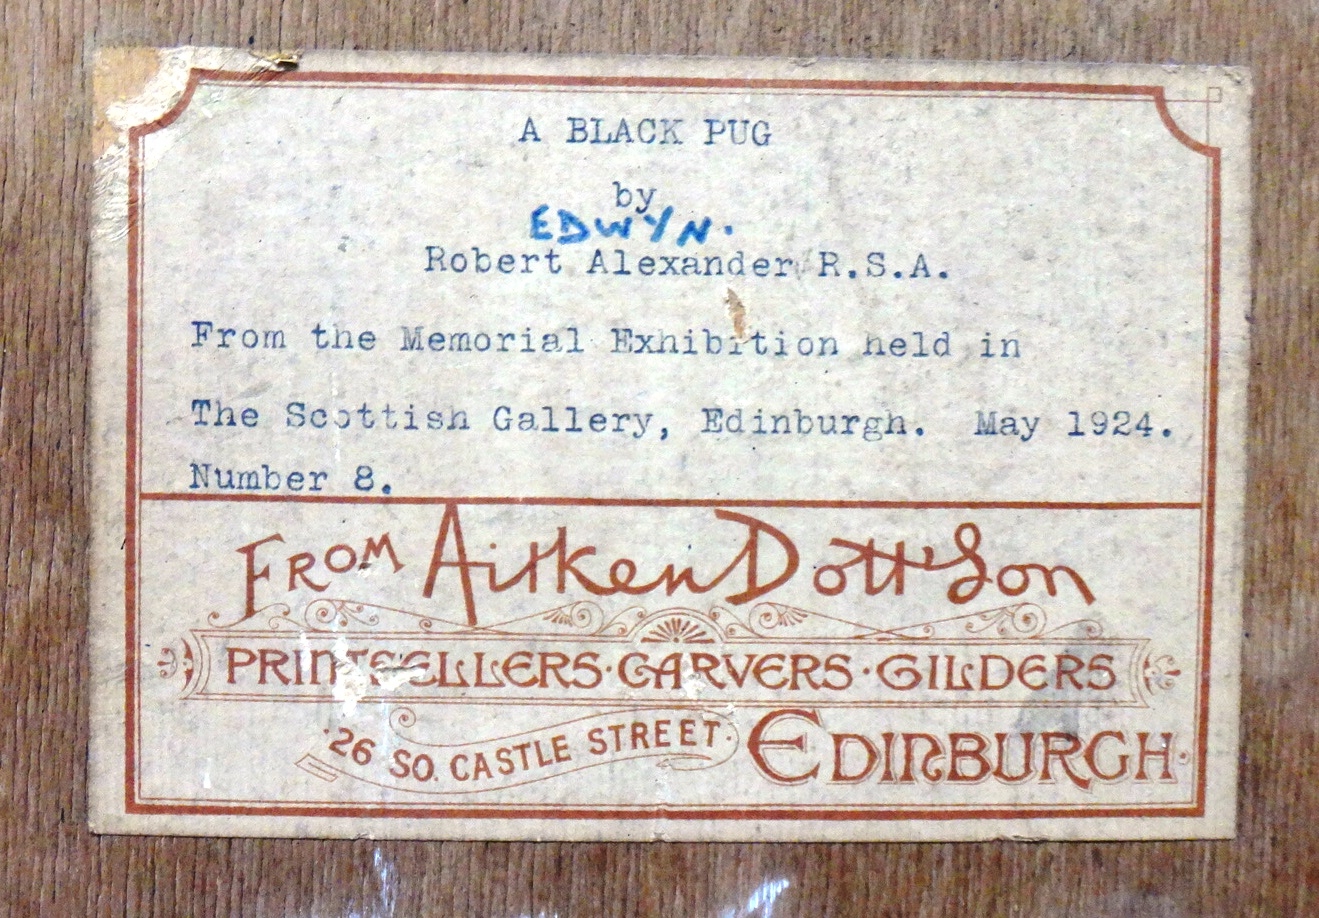 A BLACK PUG
by
EDWYN.
Robert Alexander R.S.A.
From the Memorial Exhibition held in
The Scottish Gallery, Edinburgh. May 1924.
Number 8.
FROM Aitken Dott & Son
PRINTSELLERS · CARVERS · GILDERS
· 26 SO. CASTLE STREET · EDINBURGH ·